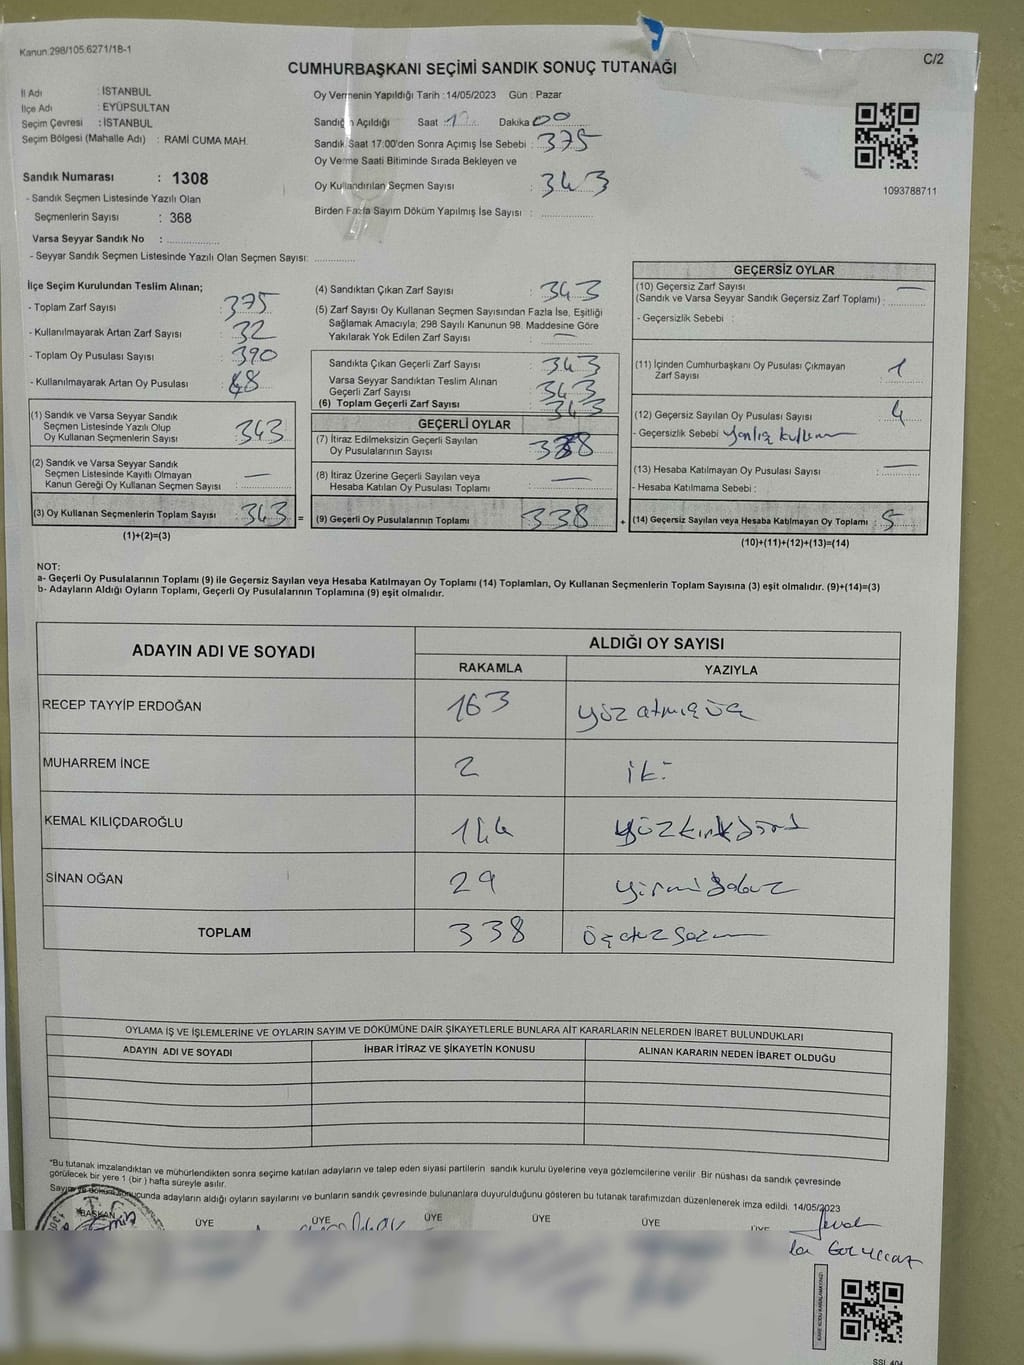 Kanun:298/105:6271/18-1
C/2
CUMHURBAŞKANI SEÇİMİ SANDIK SONUÇ TUTANAĞI
İl Adı : İSTANBUL
İlçe Adı : EYÜPSULTAN
Seçim Çevresi : İSTANBUL
Seçim Bölgesi (Mahalle Adı) : RAMİ CUMA MAH.
Sandık Numarası : 1308
- Sandık Seçmen Listesinde Yazılı Olan
Seçmenlerin Sayısı : 368
Varsa Seyyar Sandık No :
- Seyyar Sandık Seçmen Listesinde Yazılı Olan Seçmen Sayısı:
Oy Vermenin Yapıldığı Tarih :14/05/2023 Gün : Pazar
Sandığın Açıldığı Saat : Dakika 00
Sandık Saat 17:00'den Sonra Açımış İse Sebebi : 375
Oy Verme Saati Bitiminde Sırada Bekleyen ve
Oy Kullandırılan Seçmen Sayısı : 343
Birden Fazla Sayım Döküm Yapılmış İse Sayısı :
1093788711
İlçe Seçim Kurulundan Teslim Alınan;
- Toplam Zarf Sayısı : 375
- Kullanılmayarak Artan Zarf Sayısı : 32
- Toplam Oy Pusulası Sayısı : 390
- Kullanılmayarak Artan Oy Pusulası : 48
(1) Sandık ve Varsa Seyyar Sandık
Seçmen Listesinde Yazılı Olup
Oy Kullanan Seçmenlerin Sayısı : 343
(2) Sandık ve Varsa Seyyar Sandık
Seçmen Listesinde Kayıtlı Olmayan
Kanun Gereği Oy Kullanan Seçmen Sayısı : —
(3) Oy Kullanan Seçmenlerin Toplam Sayısı : 343 =
(1)+(2)=(3)
(4) Sandıktan Çıkan Zarf Sayısı : 343
(5) Zarf Sayısı Oy Kullanan Seçmen Sayısından Fazla İse, Eşitliği
Sağlamak Amacıyla; 298 Sayılı Kanunun 98. Maddesine Göre
Yakılarak Yok Edilen Zarf Sayısı : —
Sandıkta Çıkan Geçerli Zarf Sayısı : 343
Varsa Seyyar Sandıktan Teslim Alınan
Geçerli Zarf Sayısı : 343
(6) Toplam Geçerli Zarf Sayısı : 343
GEÇERLİ OYLAR
(7) İtiraz Edilmeksizin Geçerli Sayılan
Oy Pusulalarının Sayısı : 338
(8) İtiraz Üzerine Geçerli Sayılan veya
Hesaba Katılan Oy Pusulası Toplamı : —
(9) Geçerli Oy Pusulalarının Toplamı : 338 +
GEÇERSİZ OYLAR
(10) Geçersiz Zarf Sayısı —
(Sandık ve Varsa Seyyar Sandık Geçersiz Zarf Toplamı) :
- Geçersizlik Sebebi :
(11) İçinden Cumhurbaşkanı Oy Pusulası Çıkmayan
Zarf Sayısı : 1
(12) Geçersiz Sayılan Oy Pusulası Sayısı : 4
- Geçersizlik Sebebi : yanlış kullanım
(13) Hesaba Katılmayan Oy Pusulası Sayısı : —
- Hesaba Katılmama Sebebi :
(14) Geçersiz Sayılan veya Hesaba Katılmayan Oy Toplamı : 5
(10)+(11)+(12)+(13)=(14)
NOT:
a- Geçerli Oy Pusulalarının Toplamı (9) ile Geçersiz Sayılan veya Hesaba Katılmayan Oy Toplamı (14) Toplamları, Oy Kullanan Seçmenlerin Toplam Sayısına (3) eşit olmalıdır. (9)+(14)=(3)
b- Adayların Aldığı Oyların Toplamı, Geçerli Oy Pusulalarının Toplamına (9) eşit olmalıdır.
ADAYIN ADI VE SOYADI
ALDIĞI OY SAYISI
RAKAMLA YAZIYLA
RECEP TAYYİP ERDOĞAN 163 yüz atmış üç
MUHARREM İNCE 2 iki
KEMAL KILIÇDAROĞLU 144 yüzkırkdört
SİNAN OĞAN 29 yirmi dokuz
TOPLAM 338
OYLAMA İŞ VE İŞLEMLERİNE VE OYLARIN SAYIM VE DÖKÜMÜNE DAİR ŞİKAYETLERLE BUNLARA AİT KARARLARIN NELERDEN İBARET BULUNDUKLARI
ADAYIN ADI VE SOYADI İHBAR İTİRAZ VE ŞİKAYETİN KONUSU ALINAN KARARIN NEDEN İBARET OLDUĞU
*Bu tutanak imzalandıktan ve mühürlendikten sonra seçime katılan adayların ve talep eden siyasi partilerin sandık kurulu üyelerine veya gözlemcilerine verilir. Bir nüshası da sandık çevresinde
görülecek bir yere 1 (bir ) hafta süreyle asılır.
Sayım ve döküm sonucunda adayların aldığı oyların sayılarını ve bunların sandık çevresinde bulunanlara duyurulduğunu gösteren bu tutanak tarafımızdan düzenlenerek imza edildi. 14/05/2023
BAŞKAN ÜYE ÜYE ÜYE ÜYE ÜYE ÜYE